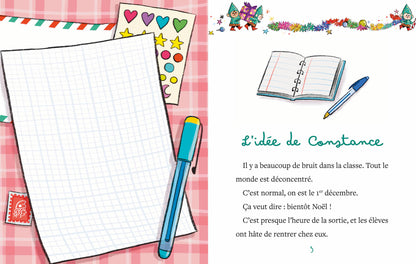 L'idée de Constance
Il y a beaucoup de bruit dans la classe. Tout le
monde est déconcentré.
C'est normal, on est le 1er décembre.
Ça veut dire : bientôt Noël !
C'est presque l'heure de la sortie, et les élèves
ont hâte de rentrer chez eux.